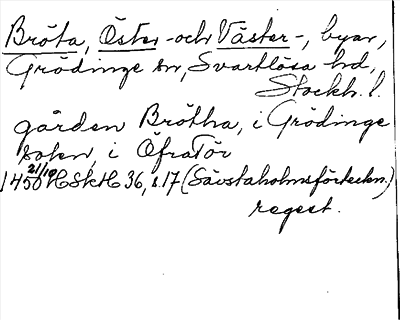 Bröta, Öster- och Väster-, byar,
Grödinge sn, Svartlösa hd,
Stockh. l.
gården Brötha, i Grödinge
sokn, i ÖfraTör
1450 21/10 HSkH 36, s. 17 (Sävstaholmsförteckn.)
regest.